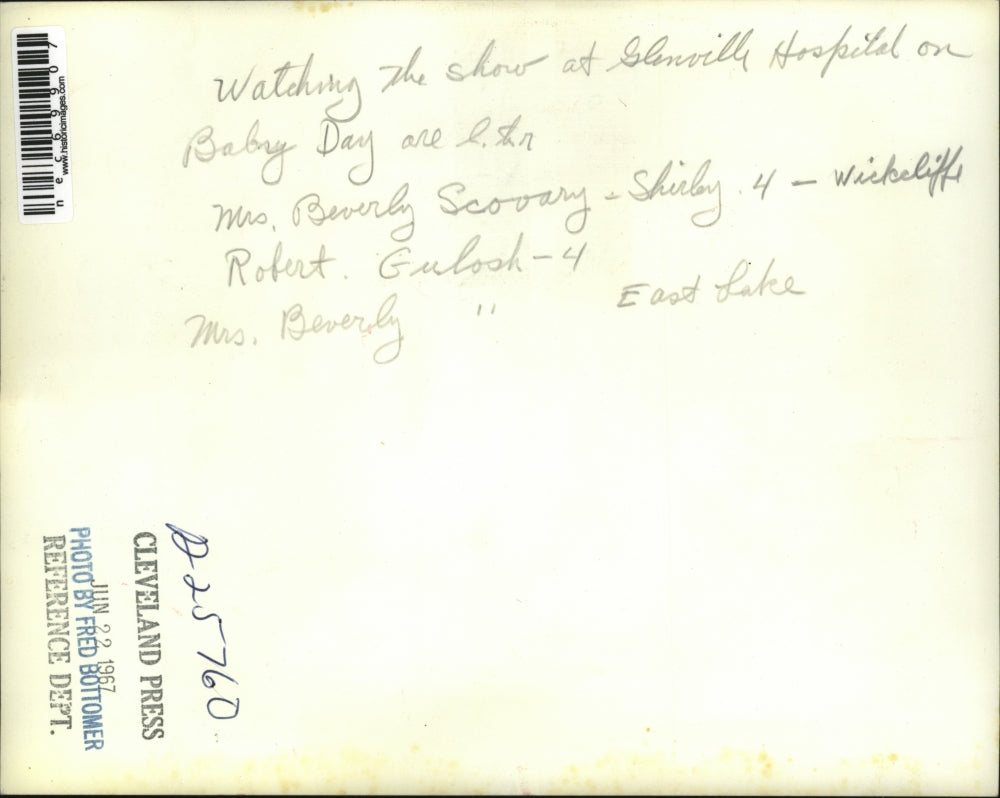 Watching the show at Glenville Hospital on
Baby Day are l. to r
Mrs. Beverly Scovary - Shirley . 4 - Wickcliffe
Robert. Gulosh - 4
Mrs. Beverly " East Lake
n e c 6 9 9 0 7
www.historicimages.com
D-25760
CLEVELAND PRESS
JUN 22 1967
PHOTO BY FRED BOTTOMER
REFERENCE DEPT.